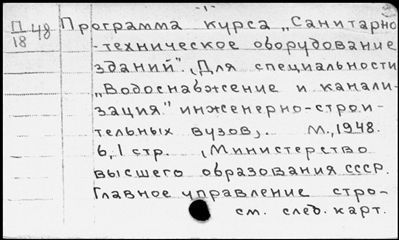 -1-
П/18 48 Программа курса „Санитарно
-техническое оборудование
зданий". Для специальности
„Водоснабжение и канали-
зация" инженерно-строи-
тельных вузов. М., 1948.
6,1 стр. (Министерство
высшего образования СССР.
Главное управление стро-
см. след. карт.